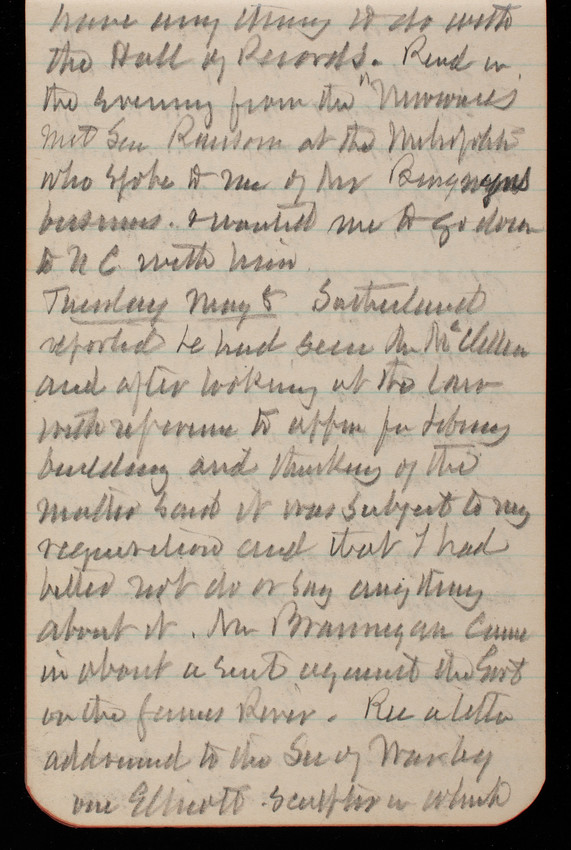 have any thing to do with
the Hall of Records. Read in
the evening from the "Newcomes"
Met Gen Ransom at the Metropolitn
who spoke to me of Mr
business. & wanted me to go down
to N C with him
Tuesday May 8 Sutherland
reported he had seen Mr McClellan
and after looking at the law
with reference to appn for Library
building and thinking of the
matter said it was subject to my
requisition and that I had
better not do or say anything
about it. Mr Brannegan came
in about a suit against the Govt
on the James River. Rec a letter
addressed to the Sec of War by
one Ellicott Sculptor in which